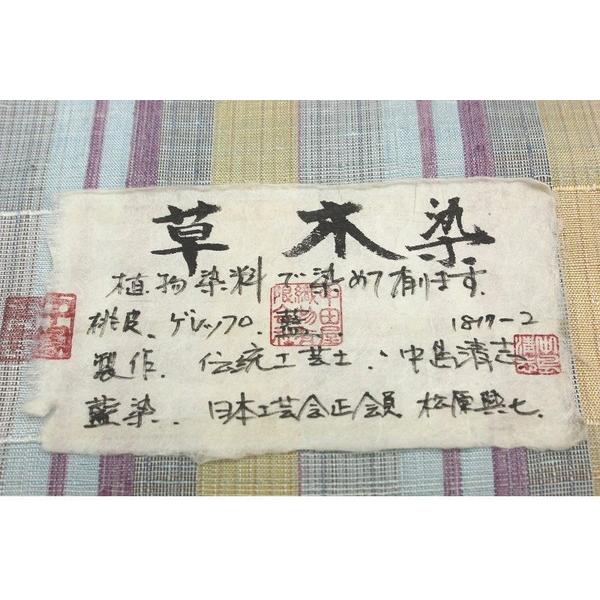 草木染
植物染料で染めて有ります.
桃皮、ゲレップ、藍、 1817-2
製作. 伝統工芸士、中島清志
藍染. 日本工芸会正会員 松原與七.